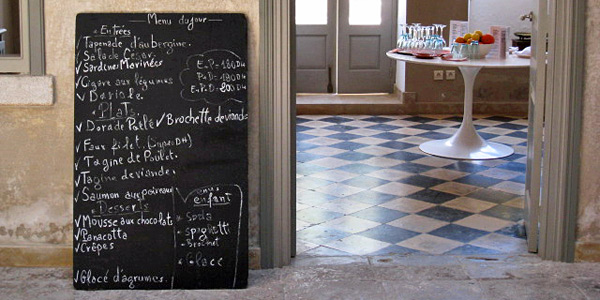 Menu du jour
Entrées
Tapenade d'aubergine.
Salade César
✓ Sardines Marinées
✓ Cigare aux légumes
✓ Bariole.
E.P = 180 DH
P.D = 190 DH
E.P.D = 200 DH
Plats
✓ Dorade Poêlé ✓ Brochette deviande
✓ Faux filet. (supp DH)
✓ Tagine de Poulet.
✓ Tagine deviande.
✓ Saumon aux poireaux
Desserts
✓ Mousse aux chocolat
✓ Panacotta
✓ Crêpes
✓ Glacé d'agrumes.
menus
enfant
Soda
spaghetti
Brochet
Glace